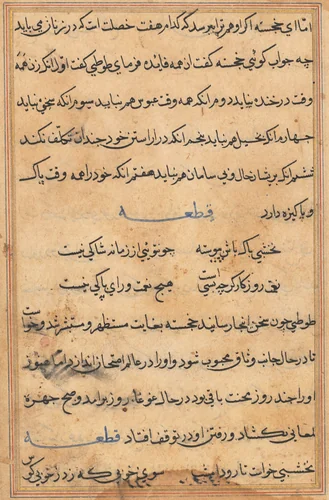 اما ای خجسته اگر او هم ترا پرسد که کدام هفت خصلت است که در زنان می باید
چه جواب گوئی خجسته گفت از همه فایده فرمای طوطی گفت اول آنکه زن همه
وقت در خنده نباید دوم آنکه همه وقت عبوس هم نباید سوم آنکه سخی نباید
چهارم آنکه بخیل هم نباید پنجم آنکه در آراستن خود چندان تکلف نکند
ششم آنکه پریشان حال و بی سامان هم نباید هفتم آنکه خود را همه وقت پاک
و پاکیزه دارد
قطعه
نخشبی پاک باش پیوسته چو توئی از زمانه شاکی نیست
نقد روزگار گرچه بسی است هیچ نعمت ورای پاکی نیست
طوطی چون سخن اینجا رسانید خجسته بغایت مستظهر و مستبشر شد و خواست
تا در حال جانب وثاق محبوب شود و او را در عالم امتحان اندازد اما هنوز
او را چند روز محنت باقی بود در حال غوغای روز برآمد و صبح چهره
لمعانی بگشاد و رفتن او در توقف افتاد قطعه
نخشبی خواست تا رود امشب سوی خوبی که